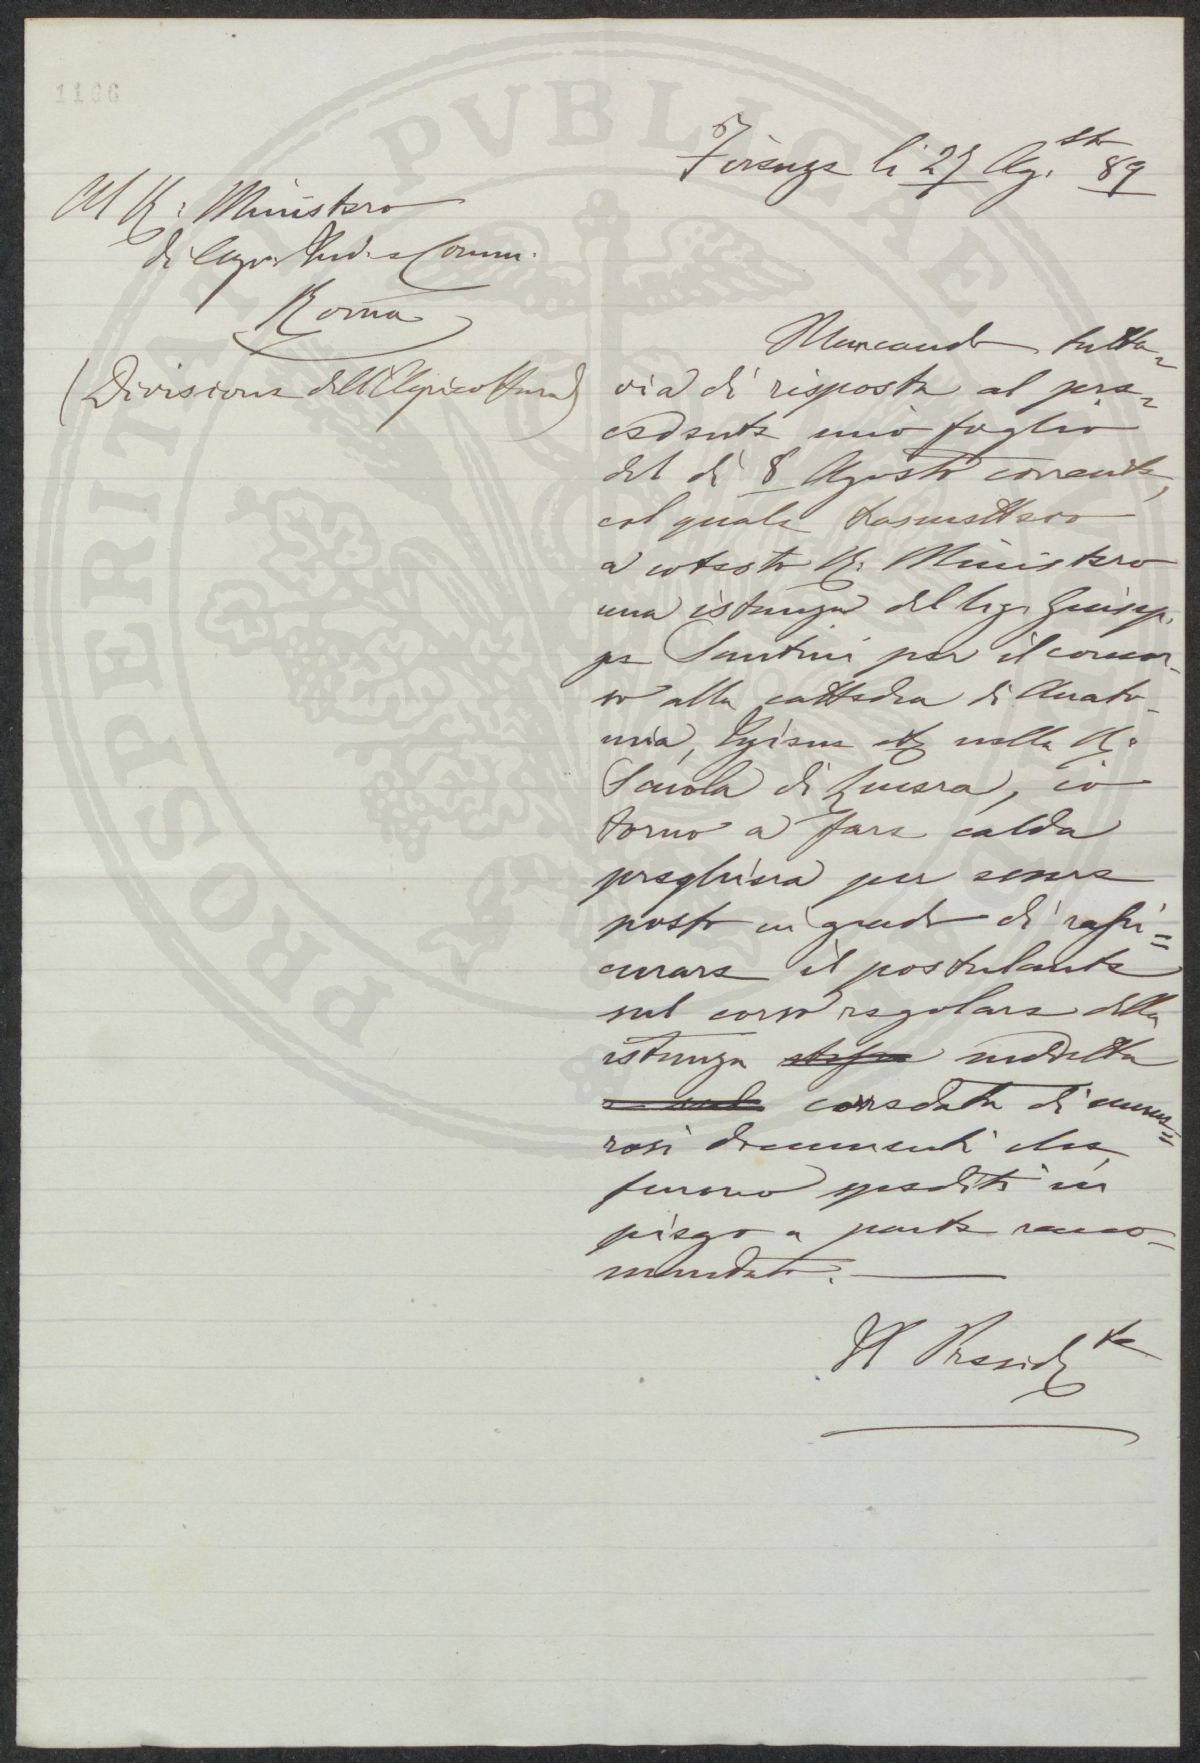 1166
Firenze li 27 Ag.sto 89
Al R: Ministero
di Agr. Ind. e Comm.
Roma
(Divisione dell'Agricoltura)
Mancando tutta=
via di risposta al pre=
cedente mio foglio
del dì 8 Agosto corrente,
col quale trasmettevo
a cotesto R: Ministero
una istanza del Sig. Giusep.
pe Santini per il concor-
so alla cattedra di Anato-
mia, Igiene etc nella R.
Scuola di Guerra, io
torno a fare calda
preghiera per essere
posto in grado di rassi=
curare il postulante
sul corso regolare della
istanza stessa suddetta
corredata di nume=
rosi documenti che
furono spediti in
piego a parte racco=
mandato.
Il Presidte
PROSPERITATI PVBLICAE